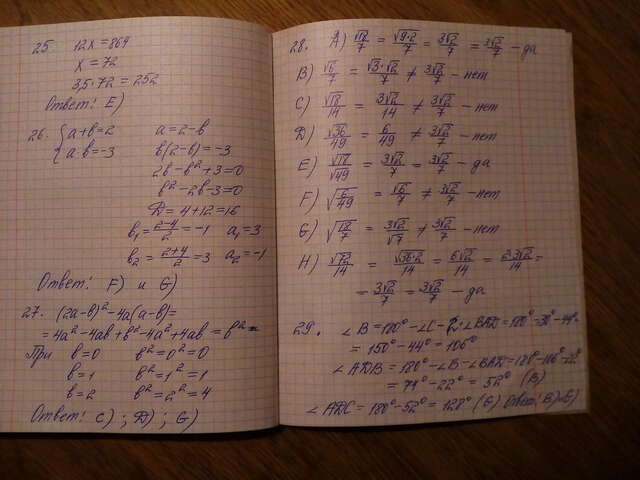 25. 12x = 869
x = 72
3,5·72 = 252
Ответ: E)
26. { a+b=2 a=2-b
a·b=-3 b(2-b)=-3
2b-b²+3=0
b²-2b-3=0
D=4+12=16
b₁=(2-4)/2=-1 a₁=3
b₂=(2+4)/2=3 a₂=-1
Ответ: F) и G)
27. (2a-b)²-4a(a-b)=
=4a²-4ab+b²-4a²+4ab=b²
При b=0 b²=0²=0
b=1 b²=1²=1
b=2 b²=2²=4
Ответ: C) ; D) ; G)
28. A) √18/7 = √(9·2)/7 = 3√2/7 = 3√2/7 - да
B) √6/7 = √3·√2/7 ≠ 3√2/7 - нет
C) √18/14 = 3√2/14 ≠ 3√2/7 - нет
D) √36/49 = 6/49 ≠ 3√2/7 - нет
E) √18/√49 = 3√2/7 = 3√2/7 - да
F) √(6/49) = √6/7 ≠ 3√2/7 - нет
G) √(18/7) = 3√2/√7 ≠ 3√2/7 - нет
H) √72/14 = √(36·2)/14 = 6√2/14 = 2·3√2/14 =
= 3√2/7 = 3√2/7 - да
29. ∠B = 180° - ∠C - 2·∠BAD = 180° - 30° - 44°
= 150° - 44° = 106°
∠ADB = 180° - ∠B - ∠BAD = 180° - 106° - 22°
= 74° - 22° = 52° (B)
∠ADC = 180° - 52° = 128° (G) Ответ: B) и G)